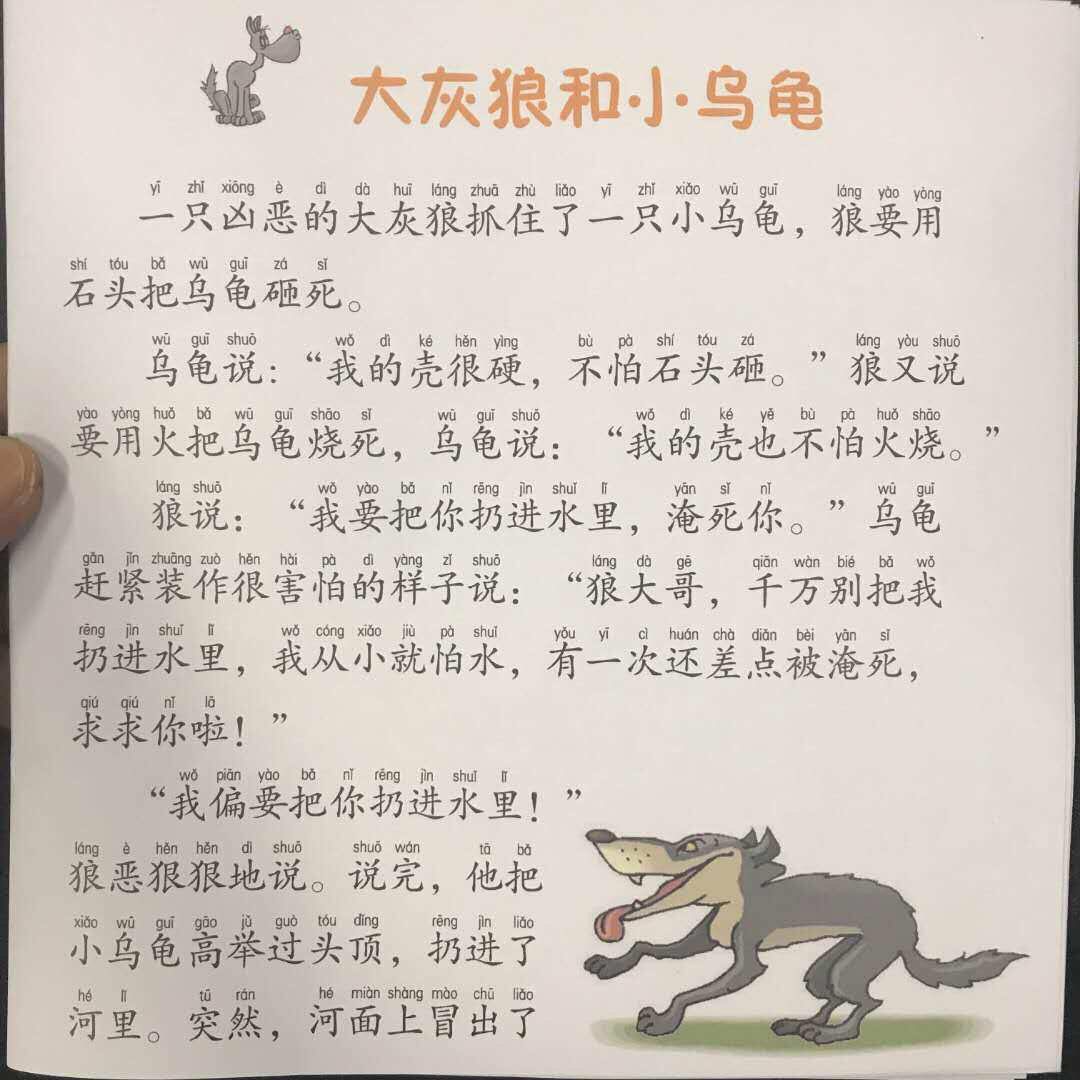 大灰狼和小乌龟
yī zhǐ xiōng è dì dà huī láng zhuā zhù liǎo yī zhǐ xiǎo wū guī láng yào yòng
一只凶恶的大灰狼抓住了一只小乌龟，狼要用
shí tóu bǎ wū guī zá sǐ
石头把乌龟砸死。
wū guī shuō wǒ dì ké hěn yìng bù pà shí tóu zá láng yòu shuō
乌龟说：“我的壳很硬，不怕石头砸。”狼又说
yào yòng huǒ bǎ wū guī shāo sǐ wū guī shuō wǒ dì ké yě bù pà huǒ shāo
要用火把乌龟烧死，乌龟说：“我的壳也不怕火烧。”
láng shuō wǒ yào bǎ nǐ rēng jìn shuǐ lǐ yān sǐ nǐ wū guī
狼说：“我要把你扔进水里，淹死你。”乌龟
gǎn jǐn zhuāng zuò hěn hài pà dì yàng zǐ shuō láng dà gē qiān wàn bié bǎ wǒ
赶紧装作很害怕的样子说：“狼大哥，千万别把我
rēng jìn shuǐ lǐ wǒ cóng xiǎo jiù pà shuǐ yǒu yī cì huán chà diǎn bèi yān sǐ
扔进水里，我从小就怕水，有一次还差点被淹死，
qiú qiú nǐ lā
求求你啦！”
wǒ piān yào bǎ nǐ rēng jìn shuǐ lǐ
“我偏要把你扔进水里！”
láng è hěn hěn dì shuō shuō wán tā bǎ
狼恶狠狠地说。说完，他把
xiǎo wū guī gāo jǔ guò tóu dǐng rēng jìn liǎo
小乌龟高举过头顶，扔进了
hé lǐ tū rán hé miàn shàng mào chū liǎo
河里。突然，河面上冒出了